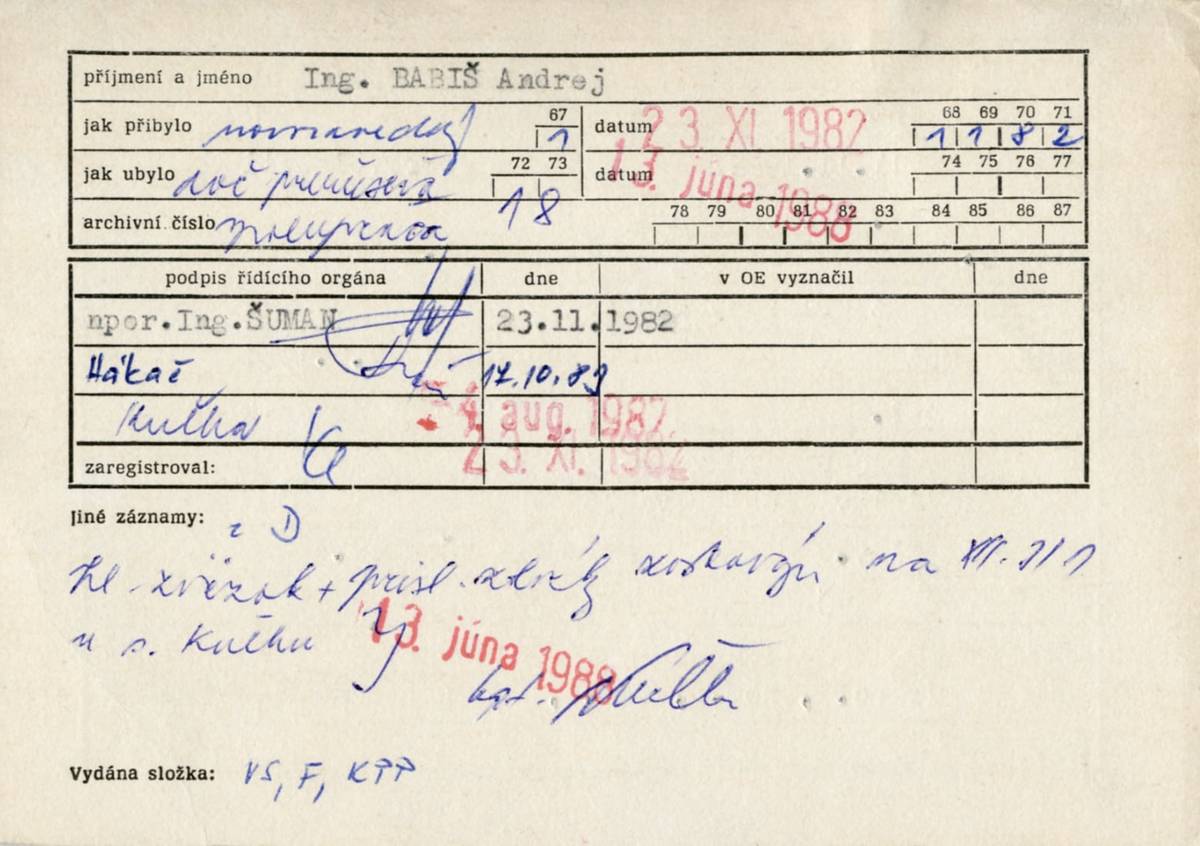 příjmení a jméno Ing. BABIŠ Andrej
jak přibylo 67 1 datum 23. XI. 1982 68 69 70 71 1 1 8 2
jak ubylo doč prerušená 72 73 18 datum 13. júna 1988 74 75 76 77
archivní číslo spolupráca 78 79 80 81 82 83 84 85 86 87
podpis řídícího orgána dne v OE vyznačil dne
npor.Ing.ŠUMAN 23.11.1982
Hákač 17.10.83
Kulha 4. aug. 1987
zaregistroval: 23. XI. 1982
Jiné záznamy: z D
zväzok + na
u s. Kulhu 13. júna 1988
Vydána složka: VS, F, KPP